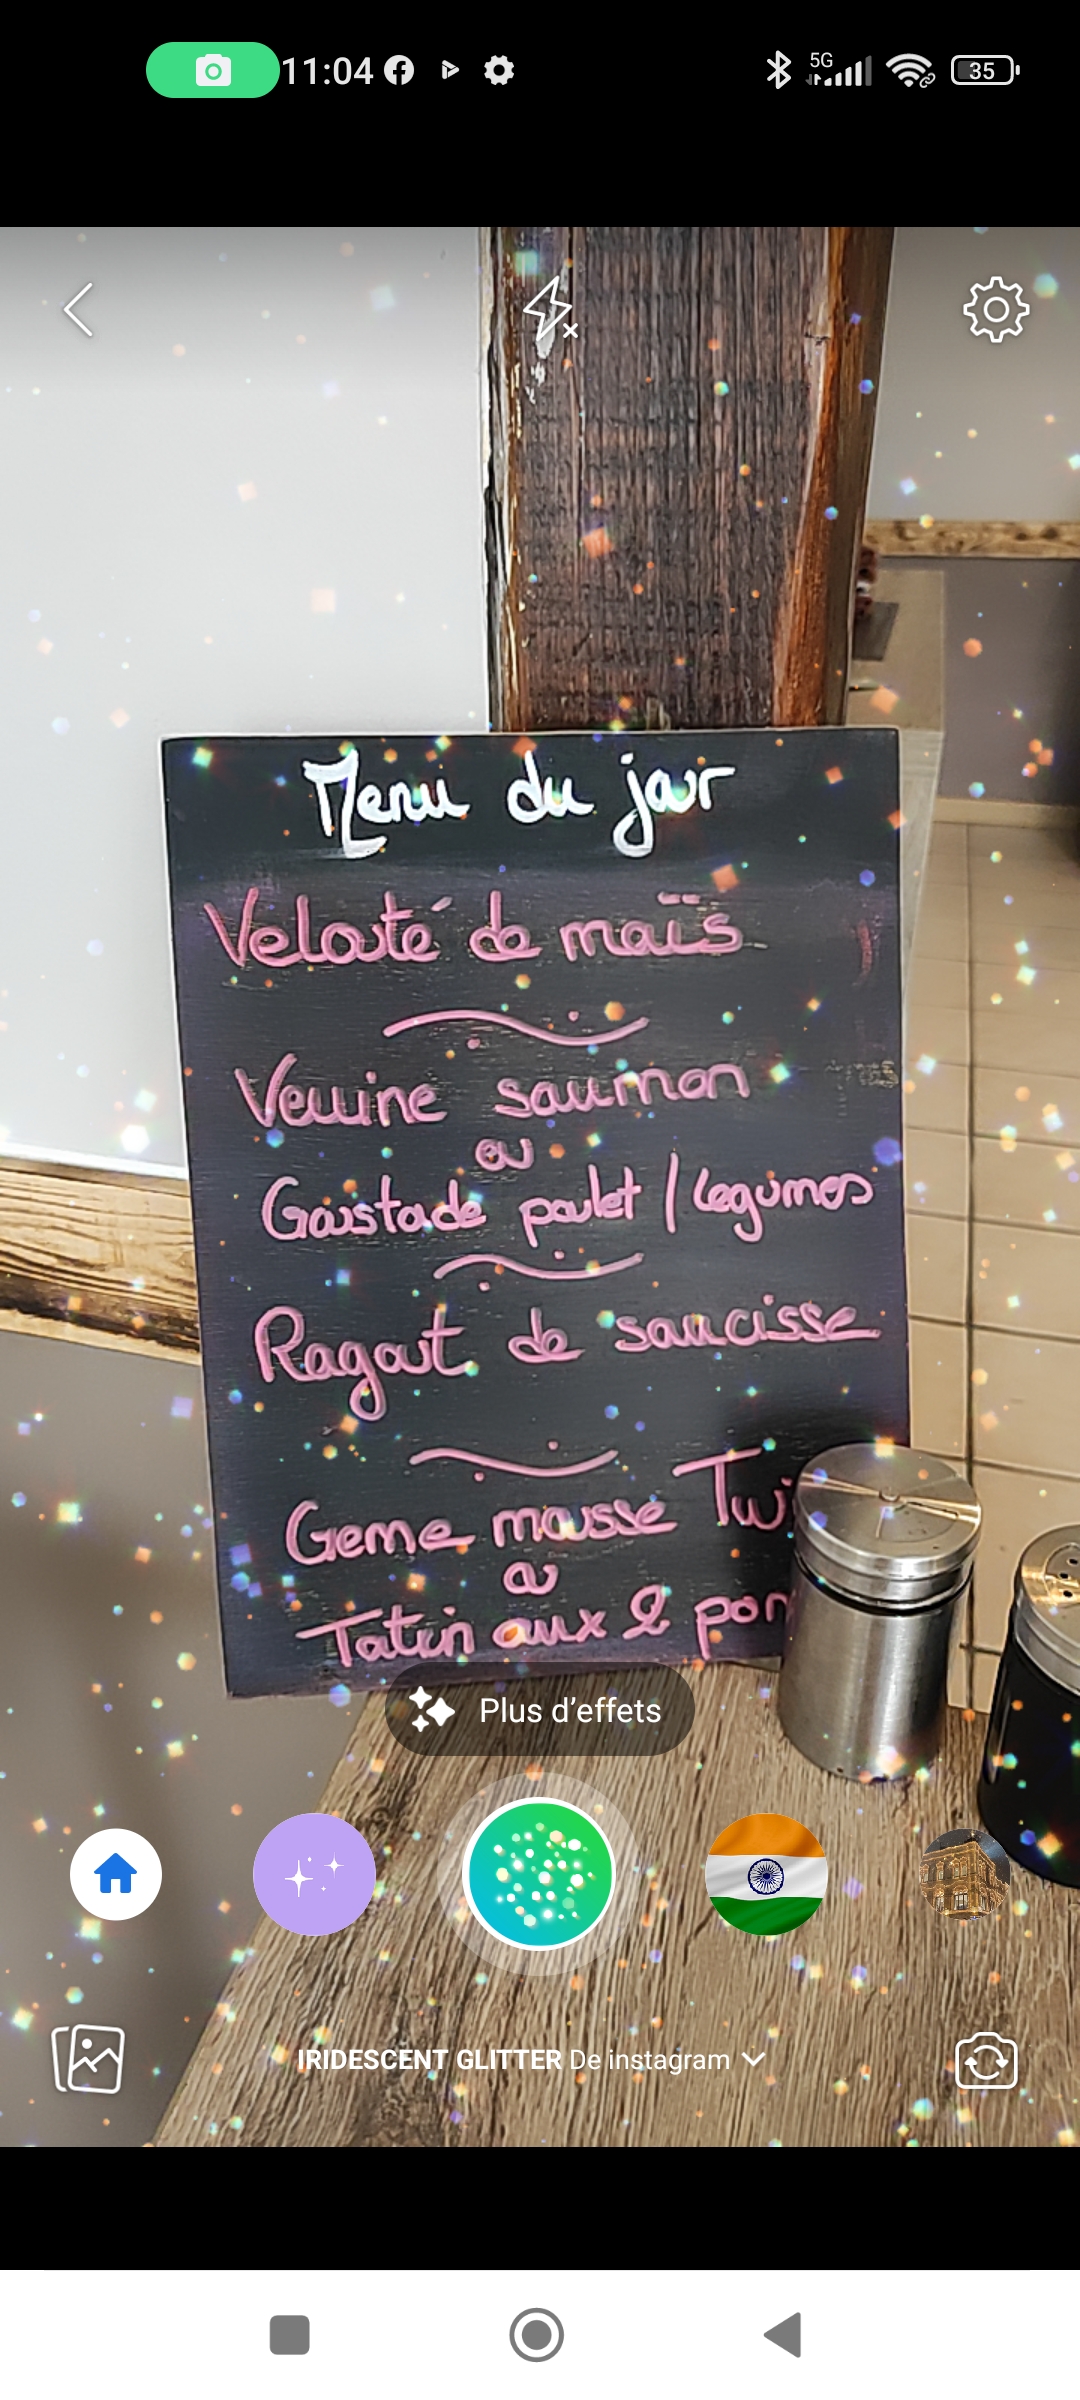 11:04
5G
35
Menu du jour
Velouté de maïs
Verrine saumon
ou
Goustade poulet / légumes
Ragout de saucisse
Creme mousse Twi
ou
Tatin aux 2 pom
Plus d'effets
IRIDESCENT GLITTER De instagram